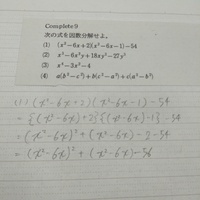 Complete 9
次の式を因数分解せよ。
(1) (x²−6x+2)(x²−6x−1)−54
(2) x³−6x²y+18xy²−27y³
(3) x⁴−3x²−4
(4) a(b²−c²)+b(c²−a²)+c(a²−b²)
(1) (x²−6x+2)(x²−6x−1)−54
= {(x²−6x)+2}{(x²−6x)−1}−54
= (x²−6x)²+(x²−6x)−2−54
= (x²−6x)²+(x²−6x)−56